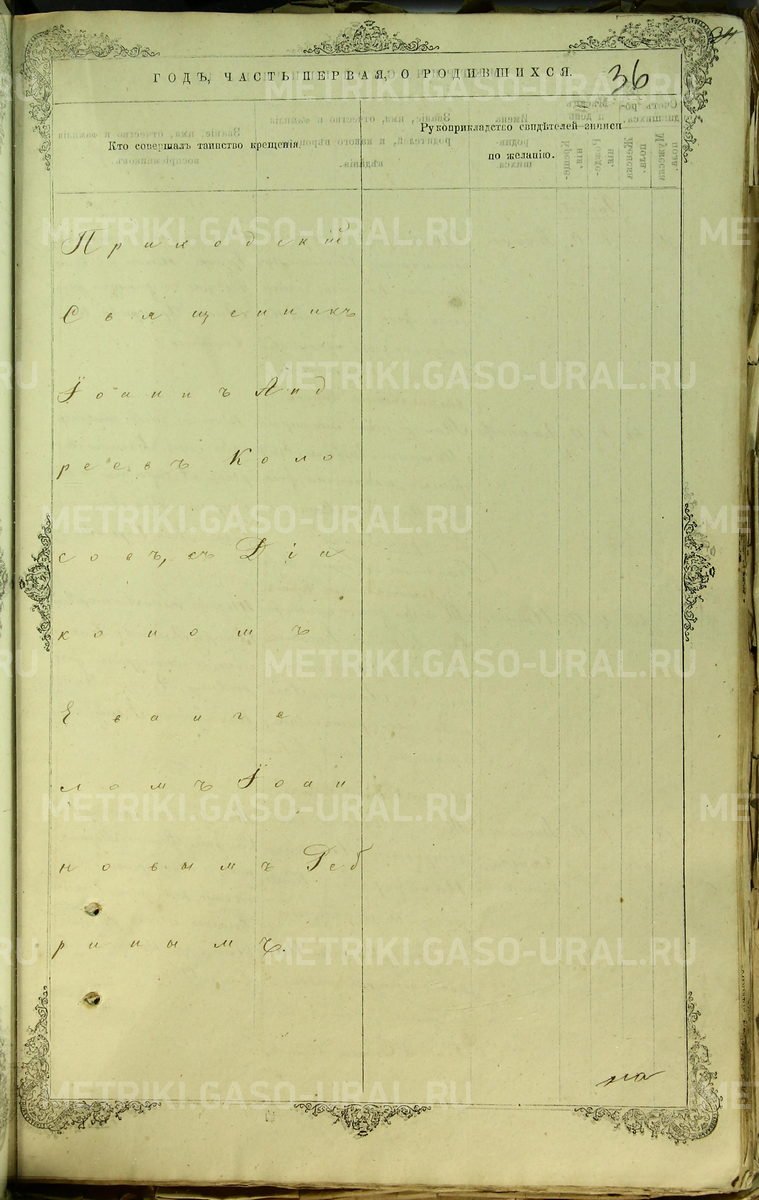 36
ГОДЪ, ЧАСТЬ ПЕРВАЯ, О РОДИВШИХСЯ.
Кто совершалъ таинство крещенія.
Рукоприкладство свидѣтелей записи
по желанію.
Приходскій
Священникъ
Іоаннъ Анд
реевъ Коло
совъ, съ Діа
кономъ
Еванге
ломъ Іоан
новымъ
ринымъ.
METRIKI.GASO-URAL.RU